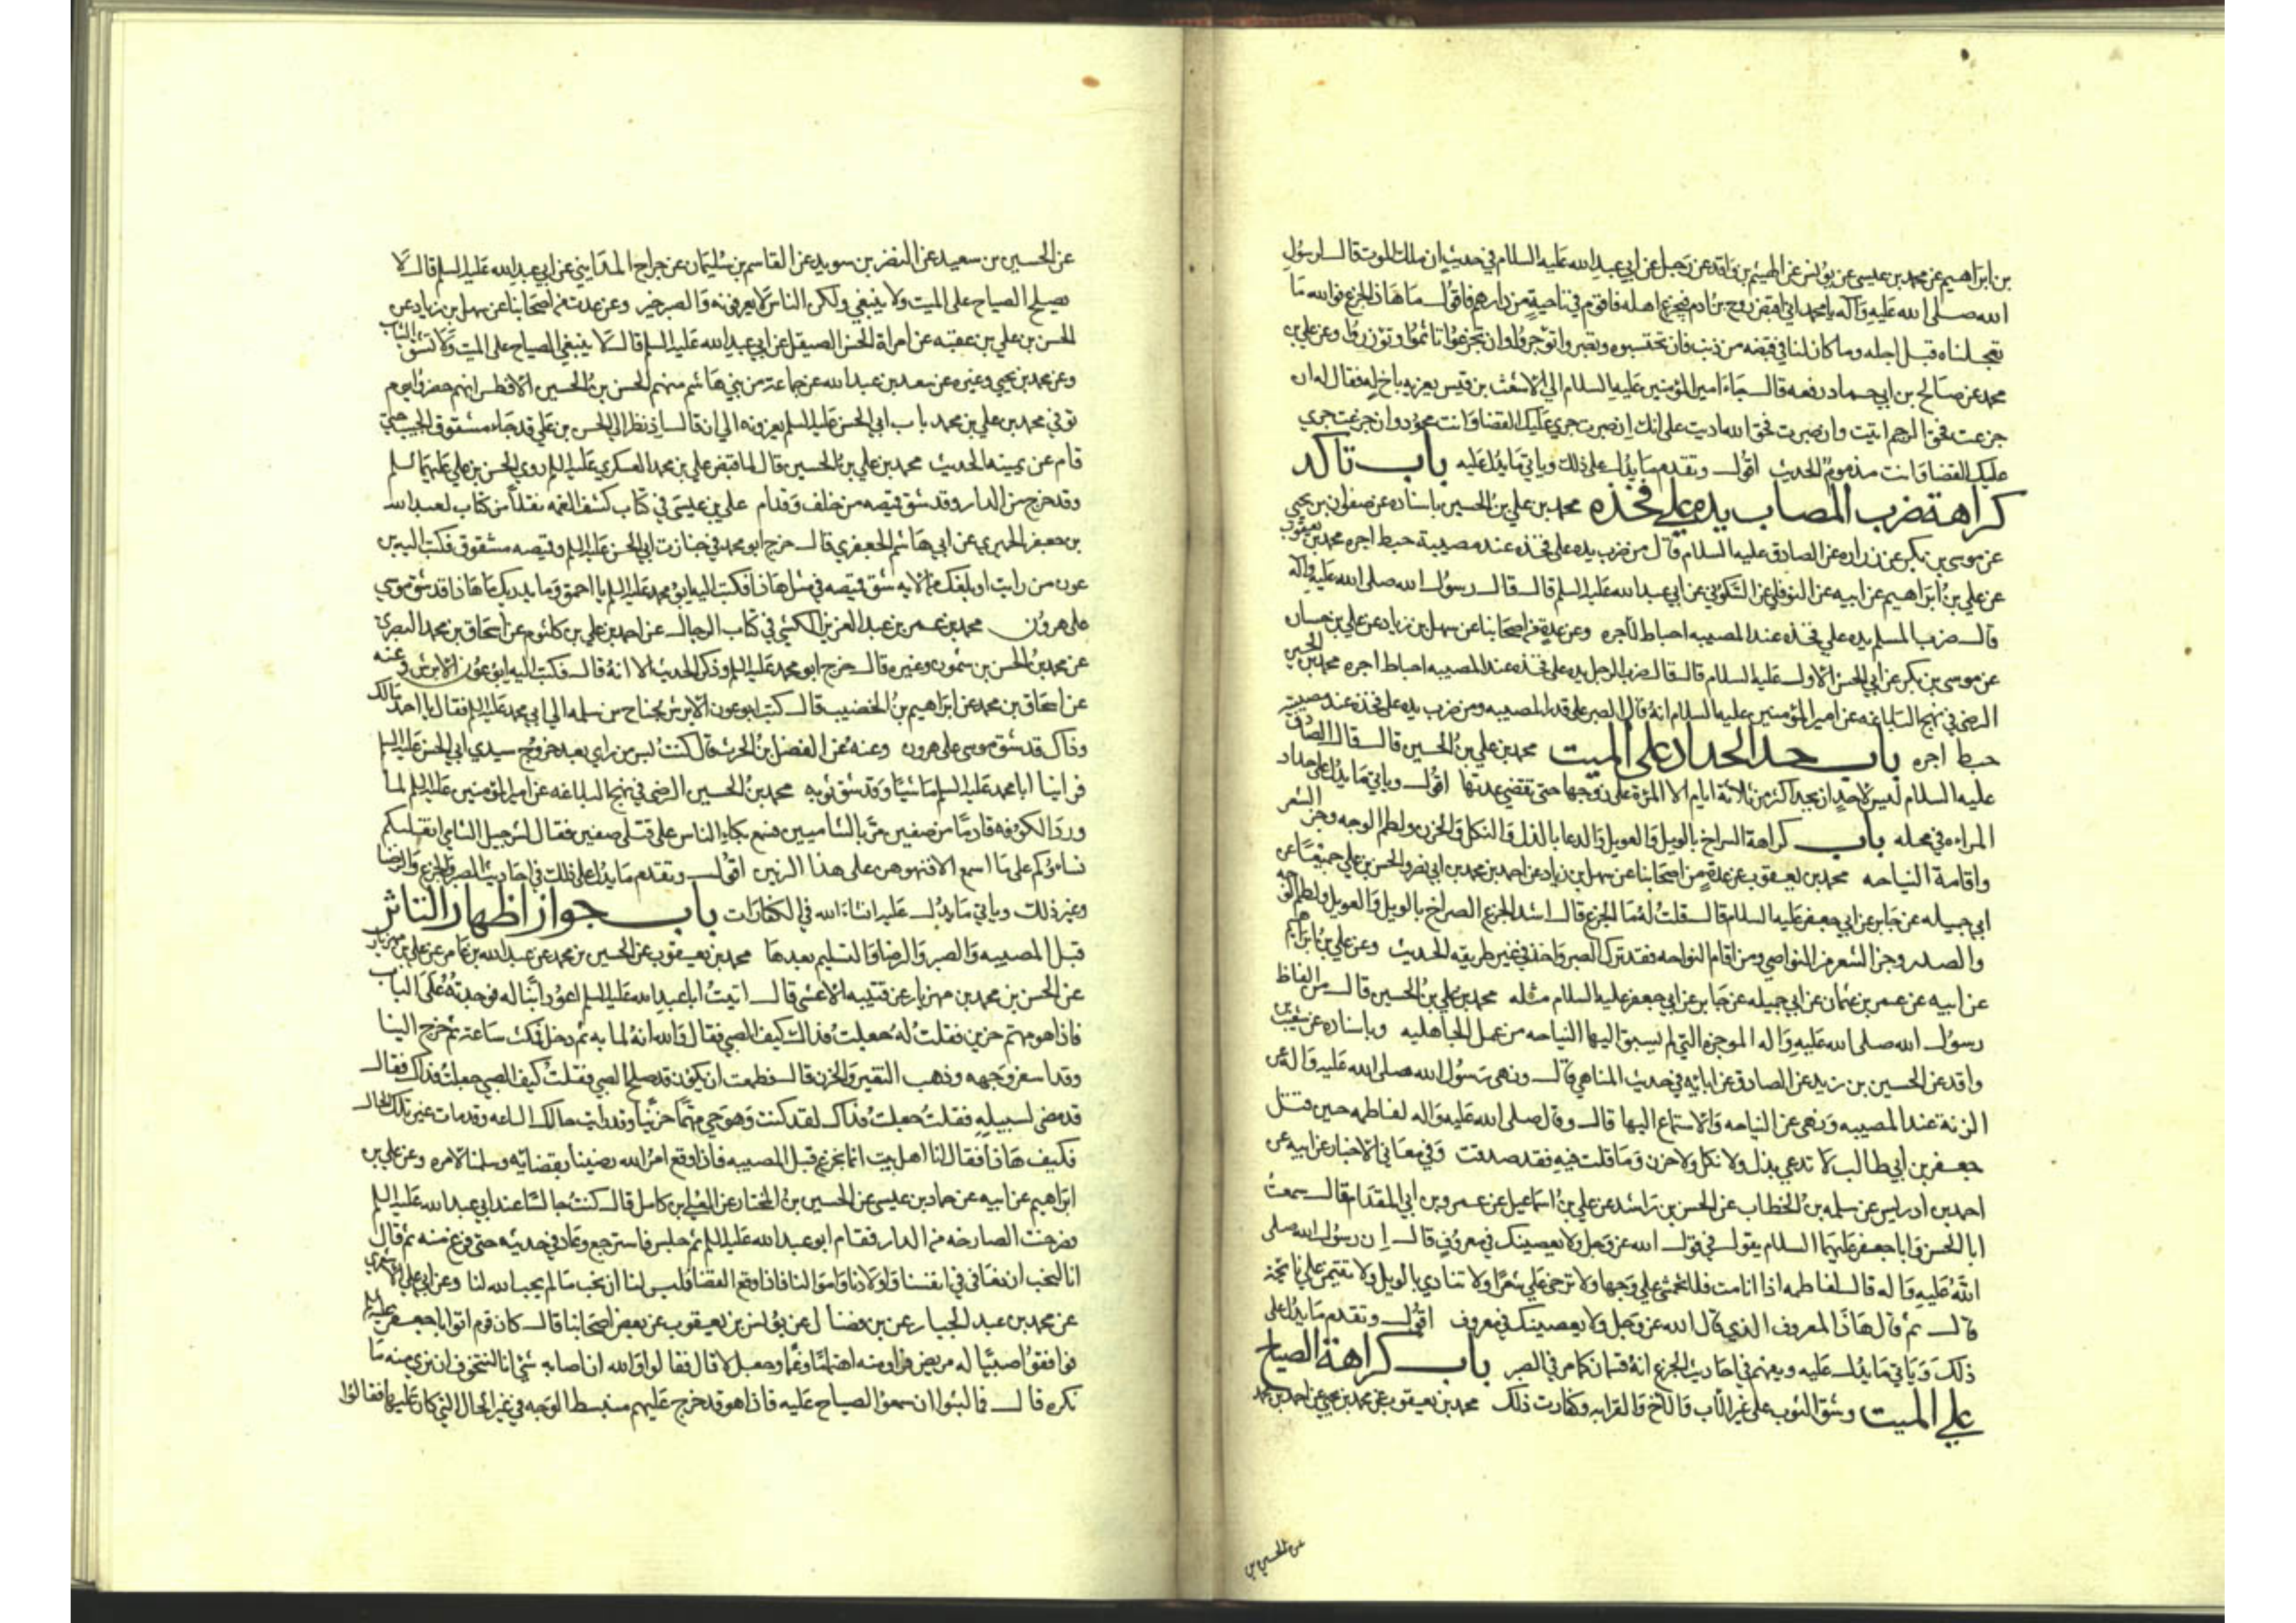 بن ابراهيم عن محمد بن عيسى عن يونس عن الهيثم بن واقد عن رجل عن ابي عبد الله عليه السلام في حديث ان ملك الموت قال لرسول
الله صلى الله عليه وآله يا محمد اني اقبض روح بن ادم فيجزع اهله فاقوم في ناحية من دارهم فاقول ما هاذا الجزع فوالله ما
تعجلناه قبل اجله وما كان لنا في قبضه من ذنب فان تحتسبوه وتصبروا توجروا وان تجزعوا تاثموا وتوزروا وعن علي بن
محمد عن صالح بن ابي حماد رفعه قال جاء امير المؤمنين عليه السلام الى الاشعث بن قيس يعزيه باخ له فقال له ان
جزعت فحق الرحم اتيت وان صبرت فحق الله اديت على انك ان صبرت جرى عليك القضا وانت محمود وان جزعت جرى
عليك القضا وانت مذموم الحديث اقول وتقدم ما يدل على ذلك وياتي ما يدل عليه باب تاكد
كراهة ضرب المصاب يده على فخذه محمد بن علي بن الحسين باسناده عن صفوان بن يحيى
عن موسى بن بكر عن زراره عن الصادق عليه السلام قال من ضرب يده على فخذه عند مصيبة حبط اجره محمد بن يعقوب
عن علي بن ابراهيم عن ابيه عن النوفلي عن السكوني عن ابي عبد الله عليه السلم قال قال رسول الله صلى الله عليه وآله
قال ضرب المسلم يده على فخذه عند المصيبه احباط لاجره وعن عدة من اصحابنا عن سهل بن زياد عن علي بن حسان
عن موسى بن بكر عن ابي الحسن الاول عليه السلام قال قال ضرب الرجل يده على فخذه عند المصيبه احباط اجره محمد بن الحسين
الرضي في نهج البلاغه عن امير المؤمنين عليه السلام انه قال الصبر على قدر المصيبه ومن ضرب يده على فخذه عند مصيبته
حبط اجره باب حد الحداد على الميت محمد بن علي بن الحسين قال قال الصادق
عليه السلام ليس لاحد ان يحد اكثر من ثلاثة ايام الا المرة على زوجها حتى تقضي عدتها اقول وياتي ما يدل على حداد
المراه في محله باب كراهة الصراخ بالويل والعويل والدعا بالذل والثكل والحزن ولطم الوجه وجز الشعر
واقامة النياحه محمد بن يعقوب عن عدة من اصحابنا عن سهل بن زياد عن احمد بن محمد بن ابي نصر والحسن بن علي جميعا عن
ابي جميله عن جابر عن ابي جعفر عليه السلام قال قلت له ما الجزع قال اشد الجزع الصراخ بالويل والعويل ولطم الوجه
والصدر وجز الشعر من النواصي ومن اقام النواحه فقد ترك الصبر واخذ في غير طريقه الحديث وعن علي بن ابراهيم
عن ابيه عن عمر بن عثمان عن ابي جميله عن جابر عن ابي جعفر عليه السلام مثله محمد بن علي بن الحسين قال من الفاظ
رسول الله صلى الله عليه واله الموجزه التي لم يسبق اليها النياحه من عمل الجاهليه وباسناده عن شعيب بن
واقد عن الحسين بن زيد عن الصادق عن ابائه في حديث المناهي قال ونهى رسول الله صلى الله عليه واله عن
الرنة عند المصيبه ونهى عن النياحه والاستماع اليها قال وقال صلى الله عليه واله لفاطمه حين قتل
جعفر بن ابي طالب لا تدعي بذل ولا ثكل ولا حزن وما قلت فيه فقد صدقت وفي معاني الاخبار عن ابيه عن
احمد بن ادريس عن سلمه بن الخطاب عن الحسن بن راشد عن علي بن اسماعيل عن عمرو بن ابي المقدام قال سمعت
ابا الحسن وابا جعفر عليهما السلام يقول في قول الله عز وجل ولا يعصينك في معروف قال ان رسول الله صلى
الله عليه واله قال لفاطمه اذا انا مت فلا تخمشي علي وجها ولا ترخي علي شعرا ولا تنادي بالويل ولا تقيمن علي نائحة
قال ثم قال هاذا المعروف الذي قال الله عز وجل ولا يعصينك في معروف اقول وتقدم ما يدل على
ذلك وياتي ما يدل عليه ويفهم في احاديث الجزع انه قسمان كما مر في الصبر باب كراهة الصياح
على الميت وشق الثوب على غير الاب والاخ والقرابه وكفارت ذلك محمد بن يعقوب عن محمد بن يحيى عن احمد بن محمد
عن الحسين بن
عن الحسين بن سعيد عن النضر بن سويد عن القاسم بن سليمان عن جراح المدايني عن ابي عبد الله عليه السلم قال لا
يصلح الصياح على الميت ولا ينبغي ولكن الناس لا يعرفونه والصبر خير وعن عدت من اصحابنا عن سهل بن زياد عن
الحسن بن علي بن عقبه عن امراة الحسن الصيقل عن ابي عبد الله عليه السلم قال لا ينبغي الصياح على الميت ولا تشق الثياب
وعن محمد بن يحيى وغيره عن سعد بن عبد الله عن جماعة من بني هاشم منهم الحسن بن الحسين الافطس انهم حضروا يوم
توفي محمد بن علي بن محمد باب ابي الحسن عليه السلم يعزونه الى ان قال اذ نظر الى الحسن بن علي قد جاء مشقوق الجيب حتى
قام عن يمينه الحديث محمد بن علي بن الحسين قال لما قبض علي بن محمد العسكري عليه السلم روي الحسن بن علي عليهما السلم
وقد خرج من الدار وقد شق قميصه من خلف وقدام علي بن عيسى في كتاب كشف الغمه نقلا من كتاب لعبد الله
بن جعفر الحميري عن ابي هاشم الجعفري قال خرج ابو محمد في جنازت ابي الحسن عليه السلم وقميصه مشقوق فكتب اليه بن
عون من رايت او بلغك من الايمه شق قميصه في مثل هاذا فكتب اليه ابو محمد عليه السلم يا احمق وما يدريك ما هاذا قد شق موسى
على هرون محمد بن عمر بن عبد العزيز الكشي في كتاب الرجال عن احمد بن علي بن كلثوم عن اسحاق بن محمد البصري
عن محمد بن الحسن بن شمون وغيره قال خرج ابو محمد عليه السلم وذكر الحديث الا انه قال فكتب اليه ابو عون الابرش وعنه
عن اسحاق بن محمد عن ابراهيم بن الخضيب قال كتب ابو عون الابرش بجناح من سلمه الى ابي محمد عليه السلم فقال يا احمق مالك
وذاك قد شق موسى على هرون وعنه عن الفضل بن الحرث قال كنت بسر من راي بعد خروج سيدي ابي الحسن عليه السلم
فراينا ابا محمد عليه السلم ماشيا وقد شق ثوبه محمد بن الحسين الرضي في نهج البلاغه عن امير المؤمنين عليه السلم لما
ورد الكوفه قادما من صفين مر بالشاميين فسمع بكاء الناس على قتلى صفين فقال لشرجيل الشامي اتغلبكم
نساؤكم على ما اسمع الا تنهوهن على هذا الرنين اقول وتقدم ما يدل على ذلك في احاديث الصبر والجزع والرضا
وغير ذلك وياتي ما يدل عليه انشاء الله في الكفارات باب جواز اظهار التاثر
قبل المصيبه والصبر والرضا والتسليم بعدها محمد بن يعقوب عن الحسين بن محمد عن عبد الله بن عامر عن علي بن مهزيار
عن الحسن بن محمد بن مهزيار عن قتيبه الاعشى قال اتيت ابا عبد الله عليه السلم اعود ابنا له فوجدته على الباب
فاذا هو مهتم حزين فقلت له جعلت فداك كيف الصبي فقال والله انه لما به ثم دخل فمكث ساعة ثم خرج الينا
وقد اسفر وجهه وذهب التغير والحزن قال فطمعت ان يكون قد صلح الصبي فقلت كيف الصبي جعلت فداك فقال
قد مضى لسبيله فقلت جعلت فداك لقد كنت وهو حي مهتما حزينا وقد رايت حالك الساعه وقد مات غير تلك الحال
فكيف هاذا فقال انا اهل بيت انما نجزع قبل المصيبه فاذا وقع امر الله رضينا بقضائه وسلمنا لامره وعن علي بن
ابراهيم عن ابيه عن حماد بن عيسى عن الحسين بن المختار عن العلي بن كامل قال كنت جالسا عند ابي عبد الله عليه السلم
فصرخت الصارخه من الدار فقام ابو عبد الله عليه السلم ثم جلس فاسترجع وعاد في حديثه حتى فرغ منه ثم قال
انا لنحب ان نعافى في انفسنا واولادنا واموالنا فاذا وقع القضا فليس لنا ان نحب ما لم يحب الله لنا وعن ابي علي الاشعري
عن محمد بن عبد الجبار عن بن فضال عن يونس بن يعقوب عن بعض اصحابنا قال كان قوم اتوا ابا جعفر عليه السلم
فوافقوا صبيا له مريض فراوا منه اهتماما وغما وجعل لا قال فقالوا والله ان اصابه شي انا لنتخوف ان نرى منه ما
نكره قال فما لبثوا ان سمعوا الصياح عليه فاذا هو قد خرج عليهم منبسط الوجه في غير الحال التي كان عليها فقالوا